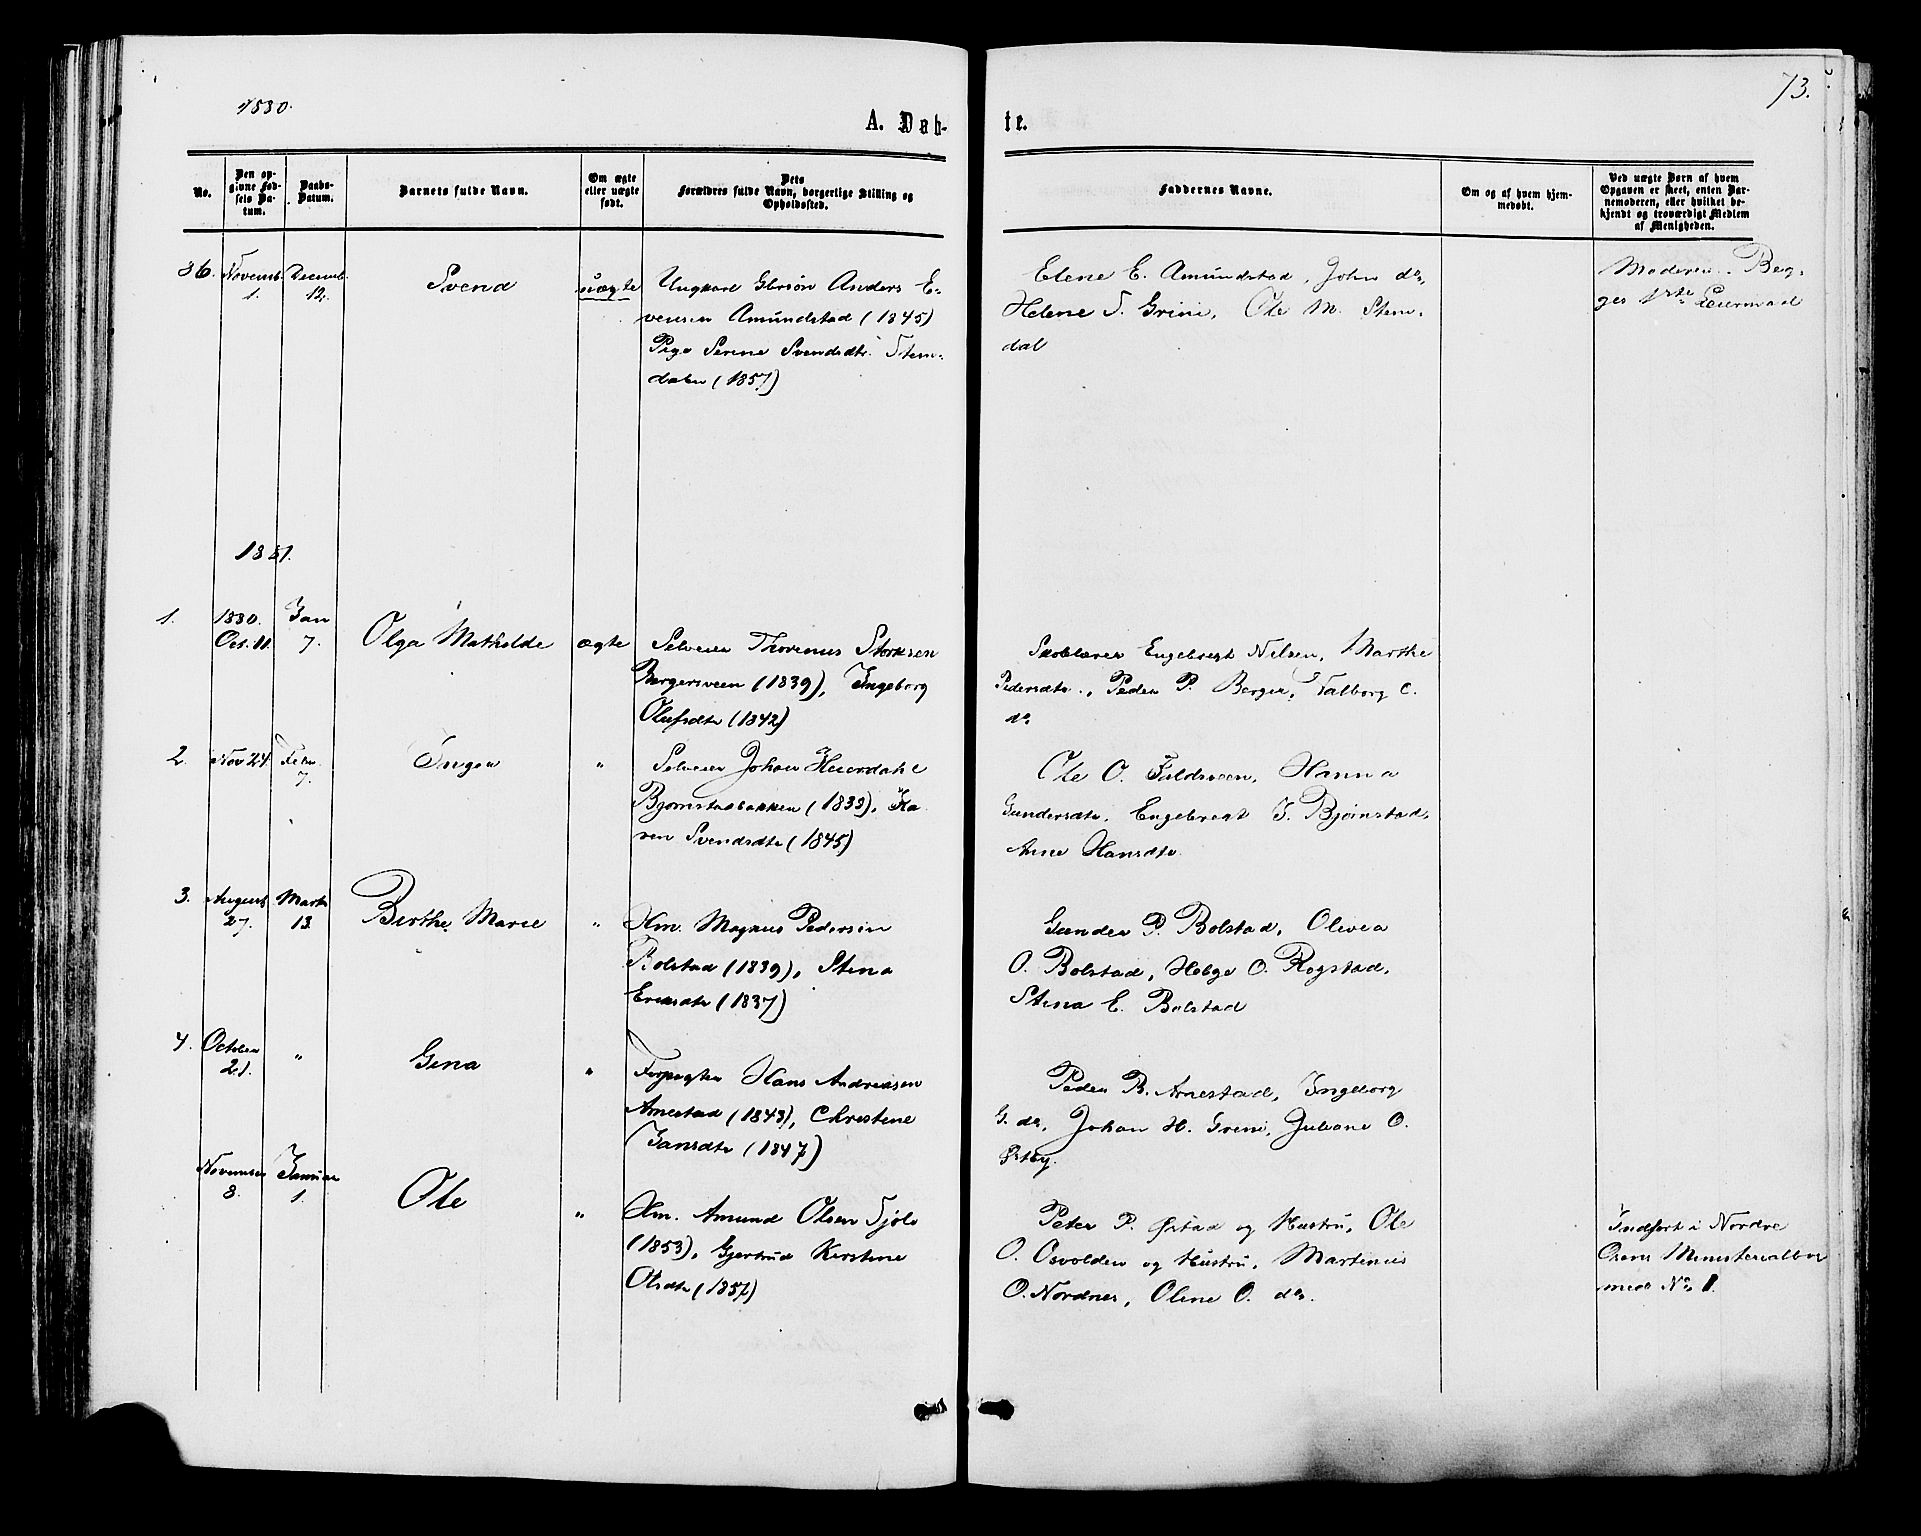 1880.
73.
A. Døb-
te.
No.
Den op-
givne Fød-
sels Da-
tum.
Daabs-
Datum.
Barnets fulde Navn.
Om ægte
eller uægte
født.
Dets
Forældres fulde Navn, borgerlige Stilling og
Opholdssted.
Faddernes Navne.
Om og af hvem hjem-
medøbt.
Ved uægte Børn af hvem
Opgaven er skeet, enten Bar-
nemoderen, eller hvilket be-
kjendt og troværdigt Medlem
af Menigheden.
36. Novemb. 1. Decemb. 12. Svend uægte
Ungkarl Gbrsøn Anders E-
vensen Amundstad (1845)
Pige Serine Svendsdtr. Stem-
dalen (1857)
Elene E. Amundstad, John do,
Helene S. Grini, Ole M. Stem-
dal
Moderen. Beg-
ges 1ste Leiermaal
1881.
1. 1880. Oct. 11. Jan 7. Olga Mathilde ægte
Selveier Thorenus Storksen
Bergersveen (1839), Ingeborg
Olufsdtr (1842)
Skolelærer Engebregt Nilsen, Marthe
Pedersdtr., Peder P. Berger, Valborg C.
do
2. Nov 24. Febr. 7. Inga "
Selveier Johan Heierdahl
Bjørnstadbakken (1833), Ka-
ren Svendsdtr (1845)
Ole O. Fuldsveen, Hanna
Gundersdtr, Engebregt J. Bjørnstad,
Anne Hansdtr
3. August 27. Marts 13. Berthe Marie "
Hm. Magnus Pedersen
Bolstad (1839), Stina
Eriksdtr (1837)
Gunder P. Bolstad, Olivia
O. Bolstad, Helge O. Rogstad,
Stina E. Bolstad
4. October 21. " Gina "
Forpagter Hans Andreasen
Arnestad (1843), Christine
Jansdtr (1847)
Peder B. Arnestad, Ingeborg
G. do, Johan H. Greni, Juliane O.
Østby.
November 8. Januar 1. Ole "
Hm. Amund Olsen Sjøli
(1853), Gjertrud Kirstine
Olsdtr (1857)
Peter P. Østad og Hustru, Ole
O. Osvolden og Hustru, Martinus
O. Nordnes, Oline O. do.
Indført i Nordre
Osens Ministerialbog
med No. 1.